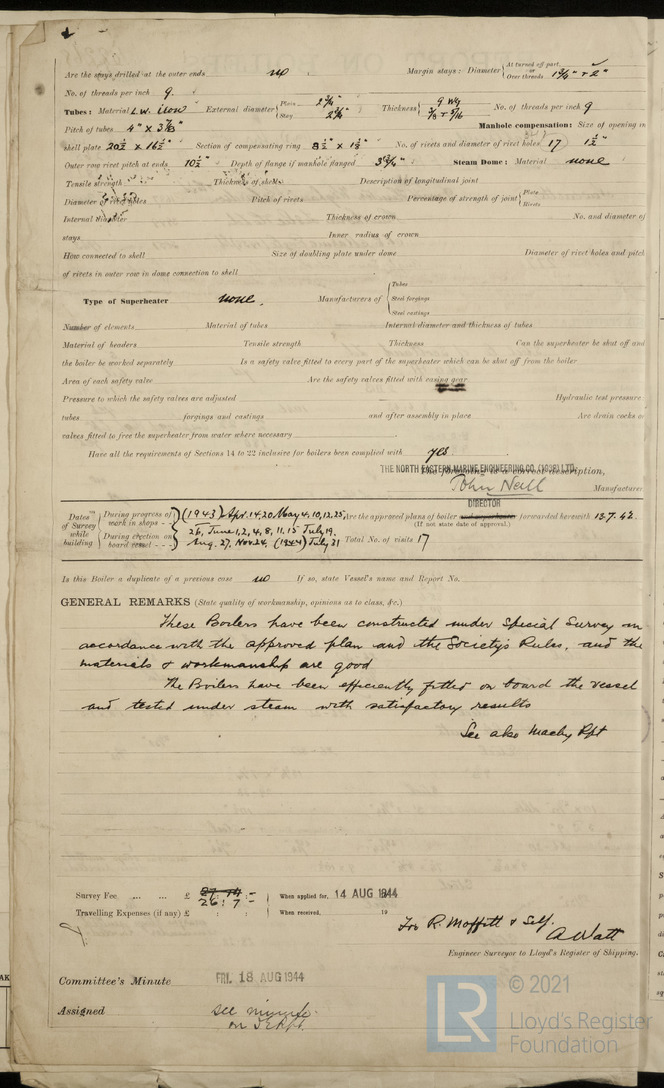 Are the stays drilled at the outer ends no Margin stays: Diameter { At turned off part, or Over threads 1¾" & 2"
No. of threads per inch 9.
Tubes: Material L.W. iron External diameter { Plain 2¾" Stay 2¾" Thickness { 9 WG 3/8 & 5/16 No. of threads per inch 9
Pitch of tubes 4" X 3⅞" Manhole compensation: Size of opening in
shell plate 20½ X 16½" Section of compensating ring 8½ X 1½" No. of rivets and diameter of rivet holes 17 1½"
Outer row rivet pitch at ends 10½" Depth of flange if manhole flanged 3¾" Steam Dome: Material none
Tensile strength Thickness of shell Description of longitudinal joint
Diameter of rivet holes Pitch of rivets Percentage of strength of joint { Plate Rivets
Internal diameter Thickness of crown No. and diameter of
stays Inner radius of crown
How connected to shell Size of doubling plate under dome Diameter of rivet holes and pitch
of rivets in outer row in dome connection to shell
Type of Superheater none. Manufacturers of { Tubes Steel forgings Steel castings
Number of elements Material of tubes Internal diameter and thickness of tubes
Material of headers Tensile strength Thickness Can the superheater be shut off and
the boiler be worked separately Is a safety valve fitted to every part of the superheater which can be shut off from the boiler
Area of each safety valve Are the safety valves fitted with easing gear
Pressure to which the safety valves are adjusted Hydraulic test pressure:
tubes forgings and castings and after assembly in place Are drain cocks or
valves fitted to free the superheater from water where necessary
Have all the requirements of Sections 14 to 22 inclusive for boilers been complied with yes.
THE NORTH EASTERN MARINE ENGINEERING CO. (1938) LTD.
The foregoing is a correct description,
John Neill Manufacturer
DIRECTOR
Dates of Survey while building { During progress of work in shops - - } (1943) Apr. 14, 20, May 4, 10, 12, 25, Are the approved plans of boiler and superheater forwarded herewith 13.7.42.
(If not state date of approval.)
26, June 1, 2, 4, 8, 11, 15 July 19,
{ During erection on board vessel - - - } Aug. 27, Nov 24, (1944) July 31 Total No. of visits 17
Is this Boiler a duplicate of a previous case no If so, state Vessel's name and Report No.
GENERAL REMARKS (State quality of workmanship, opinions as to class, &c.)
These Boilers have been constructed under Special Survey in
accordance with the approved plan and the Society's Rules, and the
materials & workmanship are good
The Boilers have been efficiently fitted on board the vessel
and tested under steam with satisfactory results
See also Machy Rpt
Survey Fee ... ... £ 26 : 7 : - When applied for, 14 AUG 1944
Travelling Expenses (if any) £ : : When received, 19
For R. Moffitt & Self.
A Watt
Engineer Surveyor to Lloyd's Register of Shipping.
Committee's Minute FRI. 18 AUG 1944
Assigned See minute
on J.E. Rpt.
LR
© 2021
Lloyd's Register
Foundation